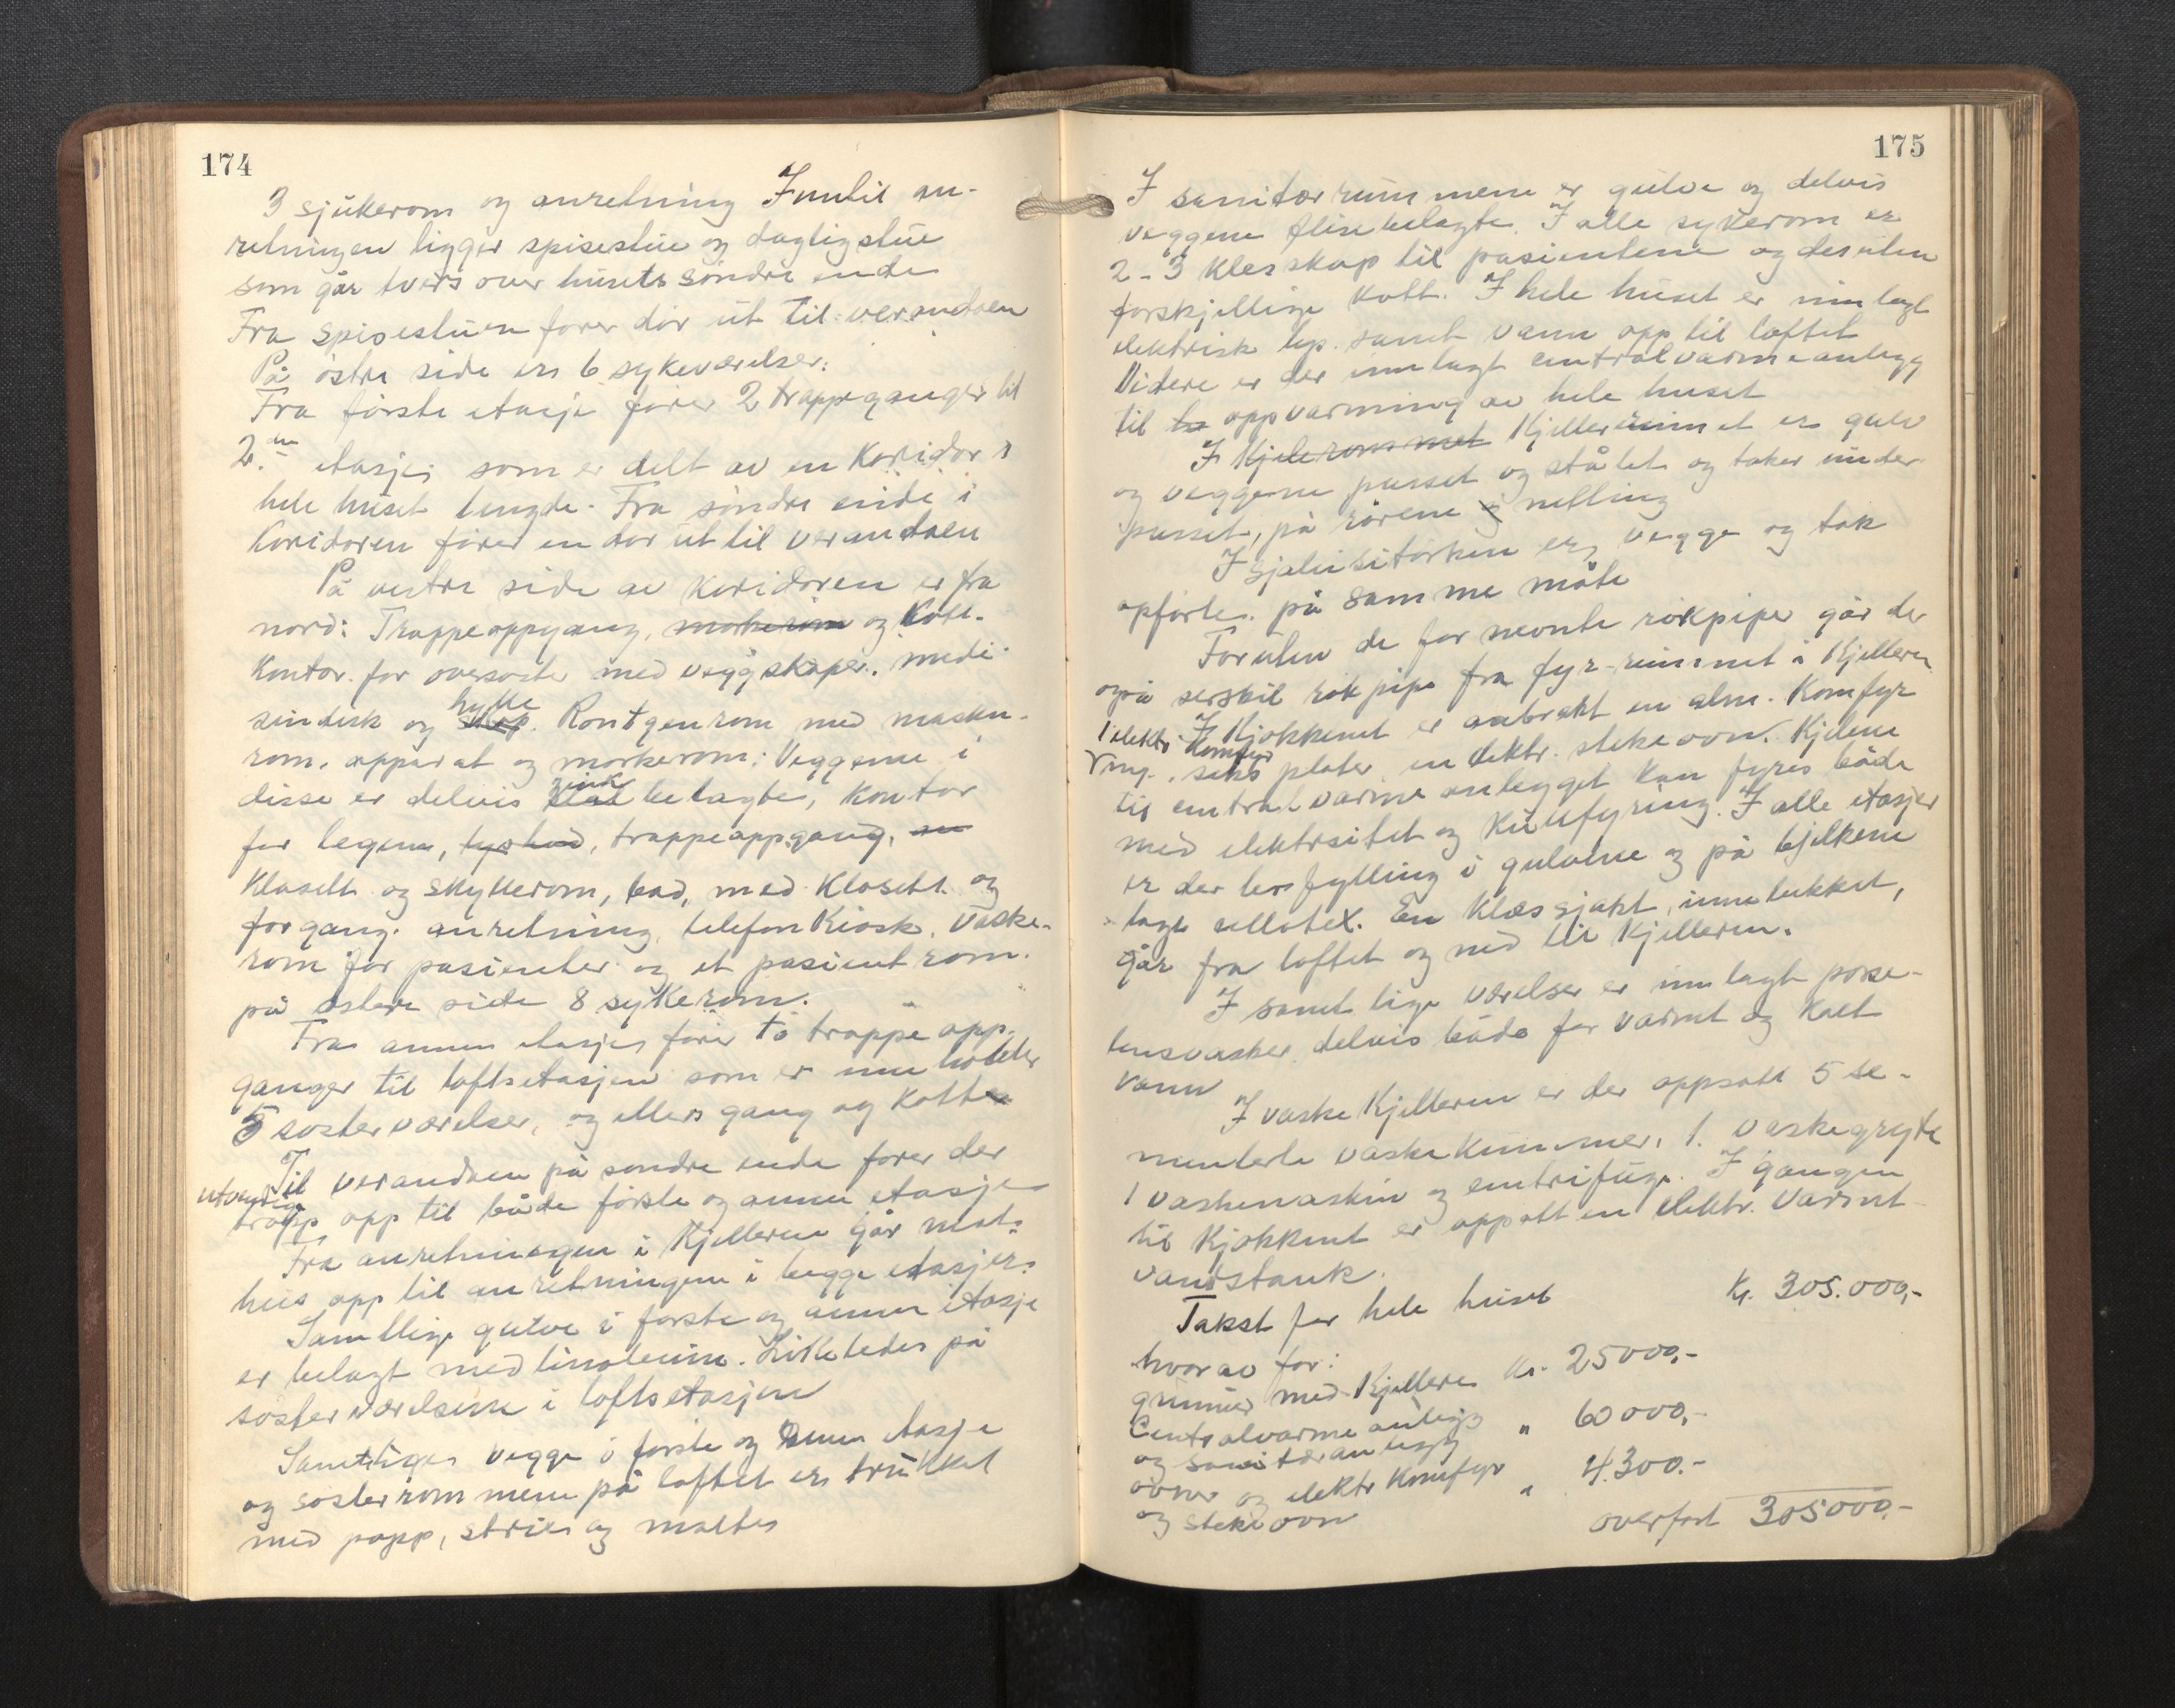 174
3 sjukerom og anretning Inntil an-
retningen ligger spisestue og dagligstue
som går tvers over husets søndre ende
Fra spisestuen fører dør ut til verandaen
På østre side er 6 sykeværelser.
Fra første etasje fører 2 trappeganger til
2.den etasje som er delt av en koridor i
hele huset lengde. Fra søndre ende i
koridoren fører en dør ut til verandaen
På vestre side av koridoren er fra
nord: Trappeoppgang, mørkerom og kott.
Kontor for oversøster med veggskaper. medi-
sindisk og hylle skap. Røntgenrom med maskin-
rom, apparat og mørkerom: Veggene i
disse er delvis zink belagte, kontor
for legene, lysbad, trappeoppgang,
klosett og skyllerom, bad, med klosett og
forgang. anretning, telefonkiosk, vaske-
rom for pasienter og et pasientrom.
på østre side 8 sykerom.
Fra annen etasje fører to trappeopp-
ganger til loftsetasjen som er inneholder
5 søsterværelser, og ellers gang og kotte
Til verandaen på søndre ende fører der
utvendig
trapp opp til både første og annen etasje
Fra anretningen i kjelleren går mat-
heis opp til anretningene i begge etasjer.
Samtlige gulve i første og annen etasje
er belagt med linoleum. Likeledes på
søsterværelsene i loftsetasjen
Samtlige vegge i første og annen etasje
og søsterrommene på loftet er trukket
med papp, strie og maltes
175
I sanitærrummene er gulve og delvis
veggene flisebelagte. I alle sykerom er
2-3 klesskap til pasientene og desuten
forskjellige kott. I hele huset er innlagt
elektrisk lys. samt vann opp til loftet
Videre er der innlagt centralvarmeanlegg
til oppvarming av hele huset
I kjelerommet Kjellerrummet er gulv
og veggene pusset og stålet og taket under
pusset, på rørene og netting
I sjølve tørken er vegge og tak
opførte på samme måte
Foruten de før nevnte røkpiper går der
også serskil røkpipe fra fyr-rummet i kjelleren
I kjøkkenet er anbrakt en alm. komfyr
1 elektr. komfyr
m. seks plater en elektr. stekeovn. Kjelene
til centralvarmeanlegget kan fyres både
med elektrsitet og kullfyring. I alle etasjer
er der lersfylling i gulvene og på bjelkene
lagt cellotex. En klæssjakt, innelukket,
går fra loftet og ned til kjelleren.
I samtlige værelser er innlagt porse-
lensvasker delvis både for varmt og kalt
vann
I vaskekjelleren er der oppsatt 5 se-
menterte vaskekummer, 1. vaskegryte
1 vaskemaskin og centrifuge. I gangen
til kjøkkenet er oppsatt en elektr. varmt-
vandstank.
Takst for hele huset kr. 305.000,-
hvorav for:
grunner med kjellere kr. 25000,-
Centralvarmeanlegg
og sanitæranlegg " 60000,-
ovner og elektr. komfyr
og stekeovn " 4.300.-
overført 305000,-